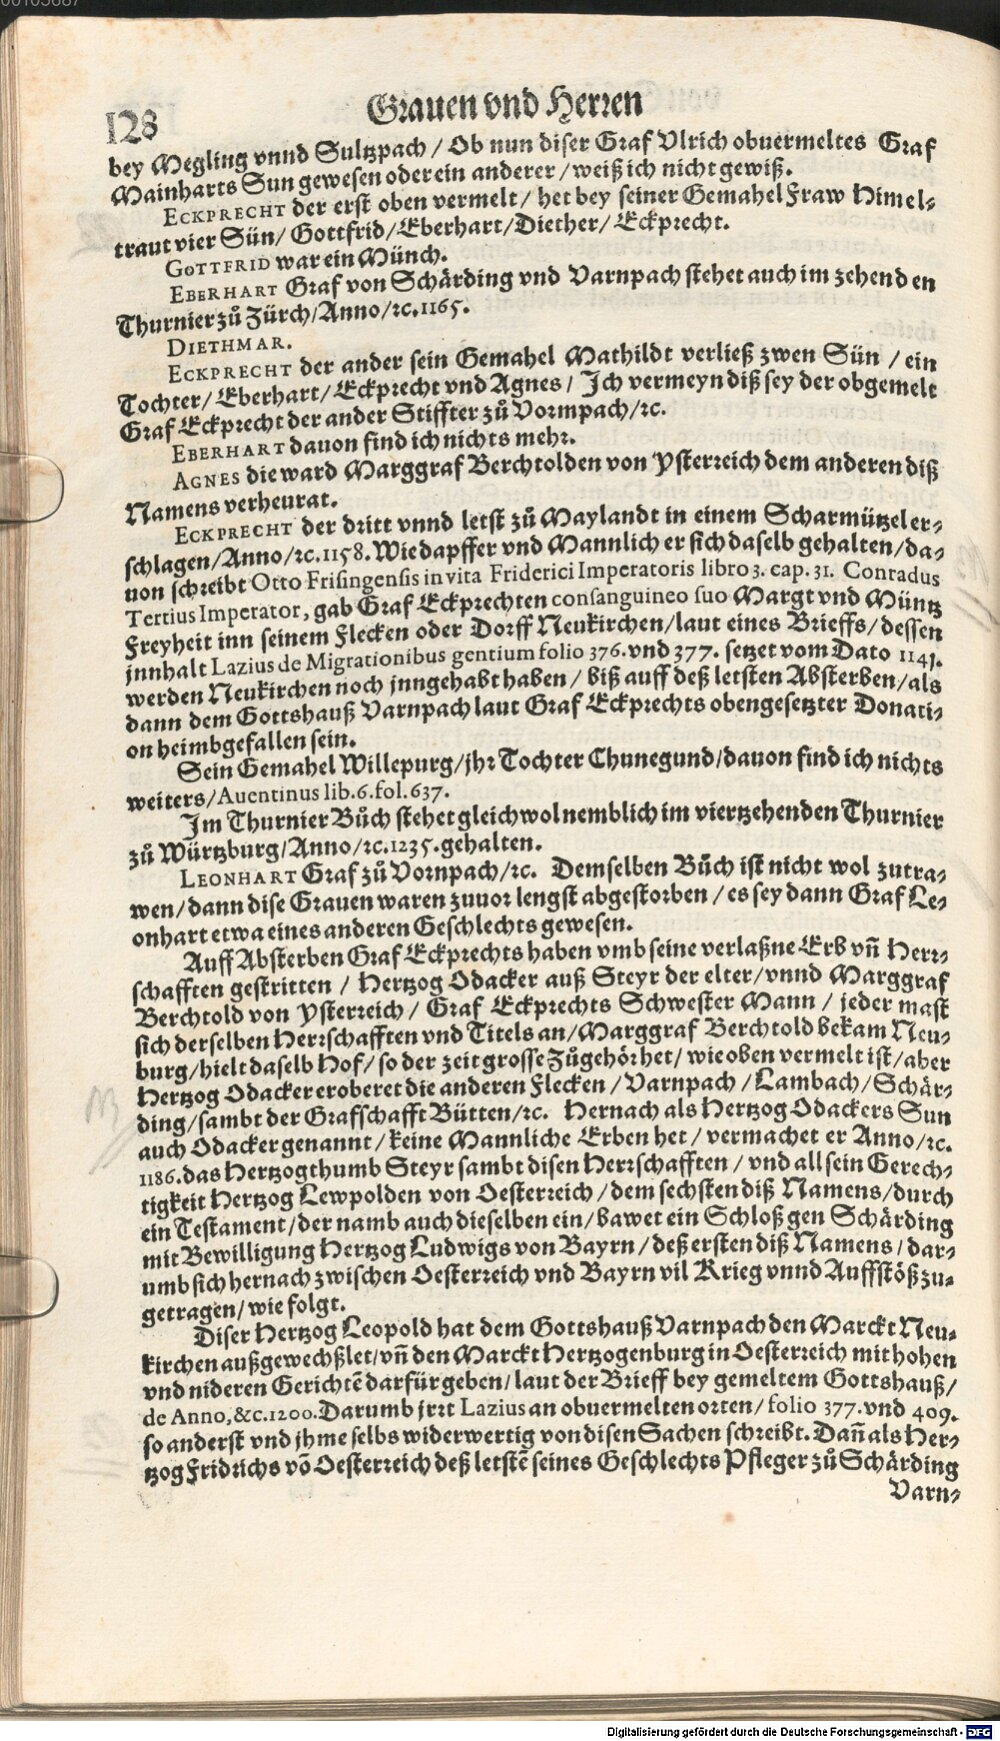 128
Grauen vnd Herren
bey Megling vnnd Sultzpach / Ob nun diser Graf Vlrich obuermeltes Graf
Mainharts Sun gewesen oder ein anderer / weiß ich nicht gewiß.
ECKPRECHT der erst oben vermelt / het bey seiner Gemahel Fraw Himel-
traut vier Sün / Gottfrid / Eberhart / Diether / Eckprecht.
GOTTFRID war ein Münch.
EBERHART Graf von Schärding vnd Varnpach stehet auch im zehenden
Thurnier zů Zürch / Anno / ꝛc. 1165.
DIETHMAR.
ECKPRECHT der ander sein Gemahel Mathildt verließ zwen Sün / ein
Tochter / Eberhart / Eckprecht vnd Agnes / Ich vermeyn diß sey der obgemelt
Graf Eckprecht der ander Stiffter zů Vormpach / ꝛc.
EBERHART dauon find ich nichts mehr.
AGNES die ward Marggraf Berchtolden von Ysterreich dem anderen diß
Namens verheurat.
ECKPRECHT der dritt vnnd letst zů Maylandt in einem Scharmützel er-
schlagen / Anno / ꝛc. 1158. Wie dapffer vnd Mannlich er sich daselb gehalten / da-
uon schreibt Otto Frisingensis in vita Friderici Imperatoris libro 3. cap. 31. Conradus
Tertius Imperator, gab Graf Eckprechten consanguineo suo Margt vnd Müntz
Freyheit inn seinem Flecken oder Dorff Neukirchen / laut eines Brieffs / dessen
jnnhalt Lazius de Migrationibus gentium folio 376. vnd 377. setzet vom Dato 1141.
werden Neukirchen noch jnngehabt haben / biß auff deß letsten Absterben / als
dann dem Gottshauß Varnpach laut Graf Eckprechts obengesetzter Donati-
on heimbgefallen sein.
Sein Gemahel Willepurg / jhr Tochter Chunegund / dauon find ich nichts
weiters / Auentinus lib. 6. fol. 637.
Im Thurnier Bůch stehet gleichwol nemblich im viertzehenden Thurnier
zů Würtzburg / Anno / ꝛc. 1235. gehalten.
LEONHART Graf zů Vornpach / ꝛc. Demselben Bůch ist nicht wol zutra-
wen / dann dise Grauen waren zuuor lengst abgestorben / es sey dann Graf Le-
onhart etwa eines anderen Geschlechts gewesen.
Auff Absterben Graf Eckprechts haben vmb seine verlaßne Erb vñ Herr-
schafften gestritten / Hertzog Odacker auß Steyr der elter / vnnd Marggraf
Berchtold von Ysterreich / Graf Eckprechts Schwester Mann / jeder mast
sich derselben Herrschafften vnd Titels an / Marggraf Berchtold bekam Neu-
burg / hielt daselb Hof / so der zeit grosse Zůgehör het / wie oben vermelt ist / aber
Hertzog Odacker eroberet die anderen Flecken / Varnpach / Lambach / Schär-
ding / sambt der Grafschafft Bütten / ꝛc. Hernach als Hertzog Odackers Sun
auch Odacker genannt / keine Mannliche Erben het / vermachet er Anno / ꝛc.
1186. das Hertzogthumb Steyr sambt disen Herrschafften / vnd all sein Gerech-
tigkeit Hertzog Lewpolden von Oesterreich / dem sechsten diß Namens / durch
ein Testament / der namb auch dieselben ein / bawet ein Schloß gen Schärding
mit Bewilligung Hertzog Ludwigs von Bayrn / deß ersten diß Namens / dar-
umb sich hernach zwischen Oesterreich vnd Bayrn vil Krieg vnnd Auffstöß zu-
getragen / wie folgt.
Diser Hertzog Leopold hat dem Gottshauß Varnpach den Marckt Neu-
kirchen außgewechßlet / vñ den Marckt Hertzogenburg in Oesterreich mit hohen
vnd nideren Gerichtē darfür geben / laut der Brieff bey gemeltem Gottshauß /
de Anno, &c. 1200. Darumb jrrt Lazius an obuermelten orten / folio 377. vnd 409.
so anderst vnd jhme selbs widerwertig von disen Sachen schreibt. Dañ als Her-
tzog Fridrichs võ Oesterreich deß letstē seines Geschlechts Pfleger zů Schärding
Varn-
Digitalisierung gefördert durch die Deutsche Forschungsgemeinschaft - DFG